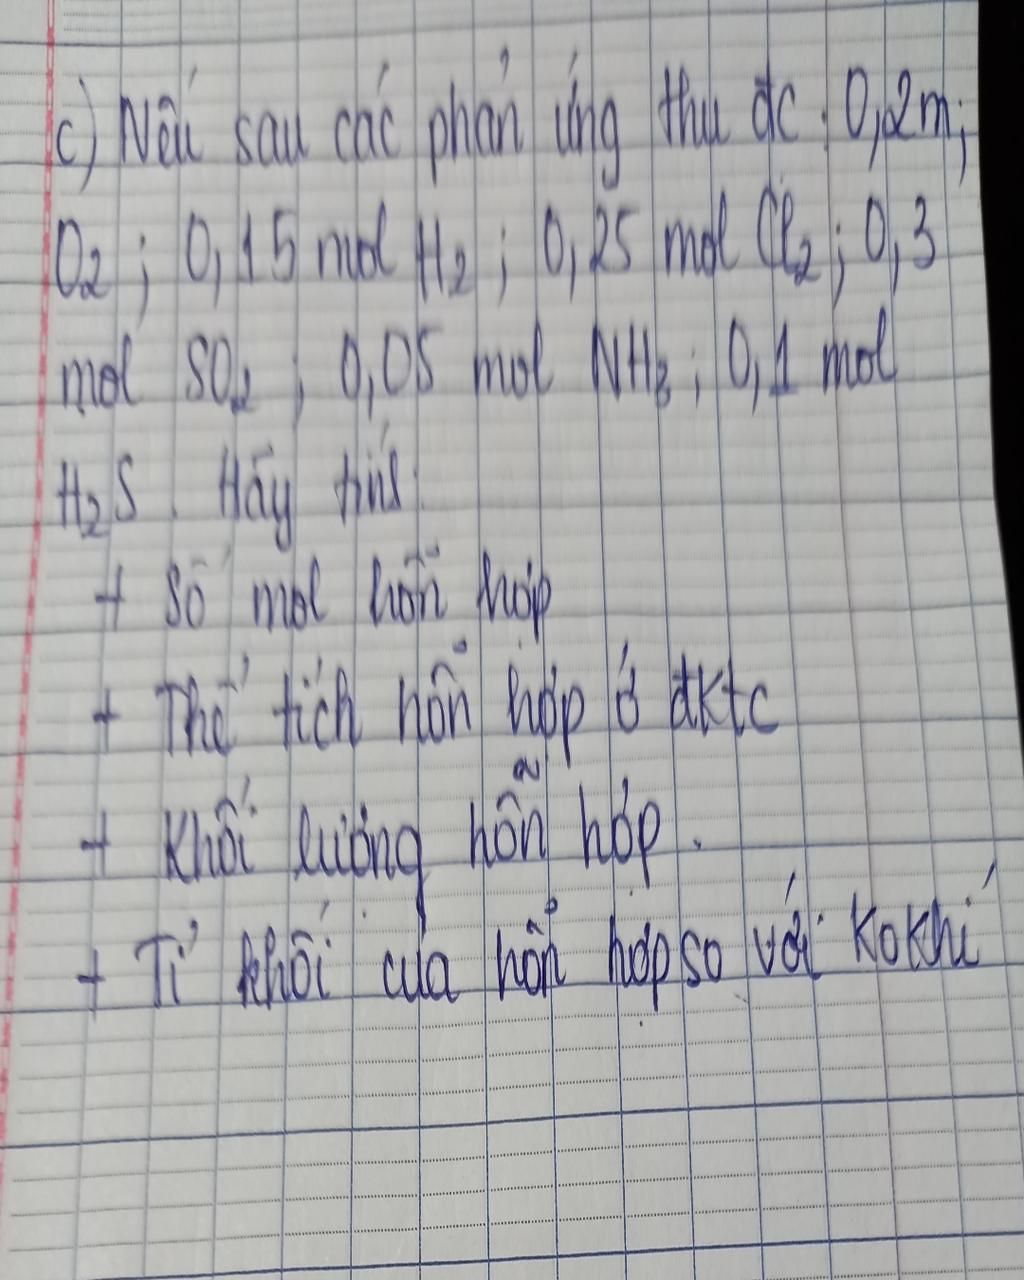 c) Nếu sau các phản ứng thu đc : 0,2m;
O2 ; 0,15 mol H2 ; 0,25 mol Cl2 ; 0,3
mol SO2 ; 0,05 mol NH3 ; 0,1 mol
H2S . Hãy tính:
+ Số mol hỗn hợp
+ Thể tích hỗn hợp ở đktc
+ Khối lượng hỗn hợp .
+ Tỉ khối của hỗn hợp so với kokhí